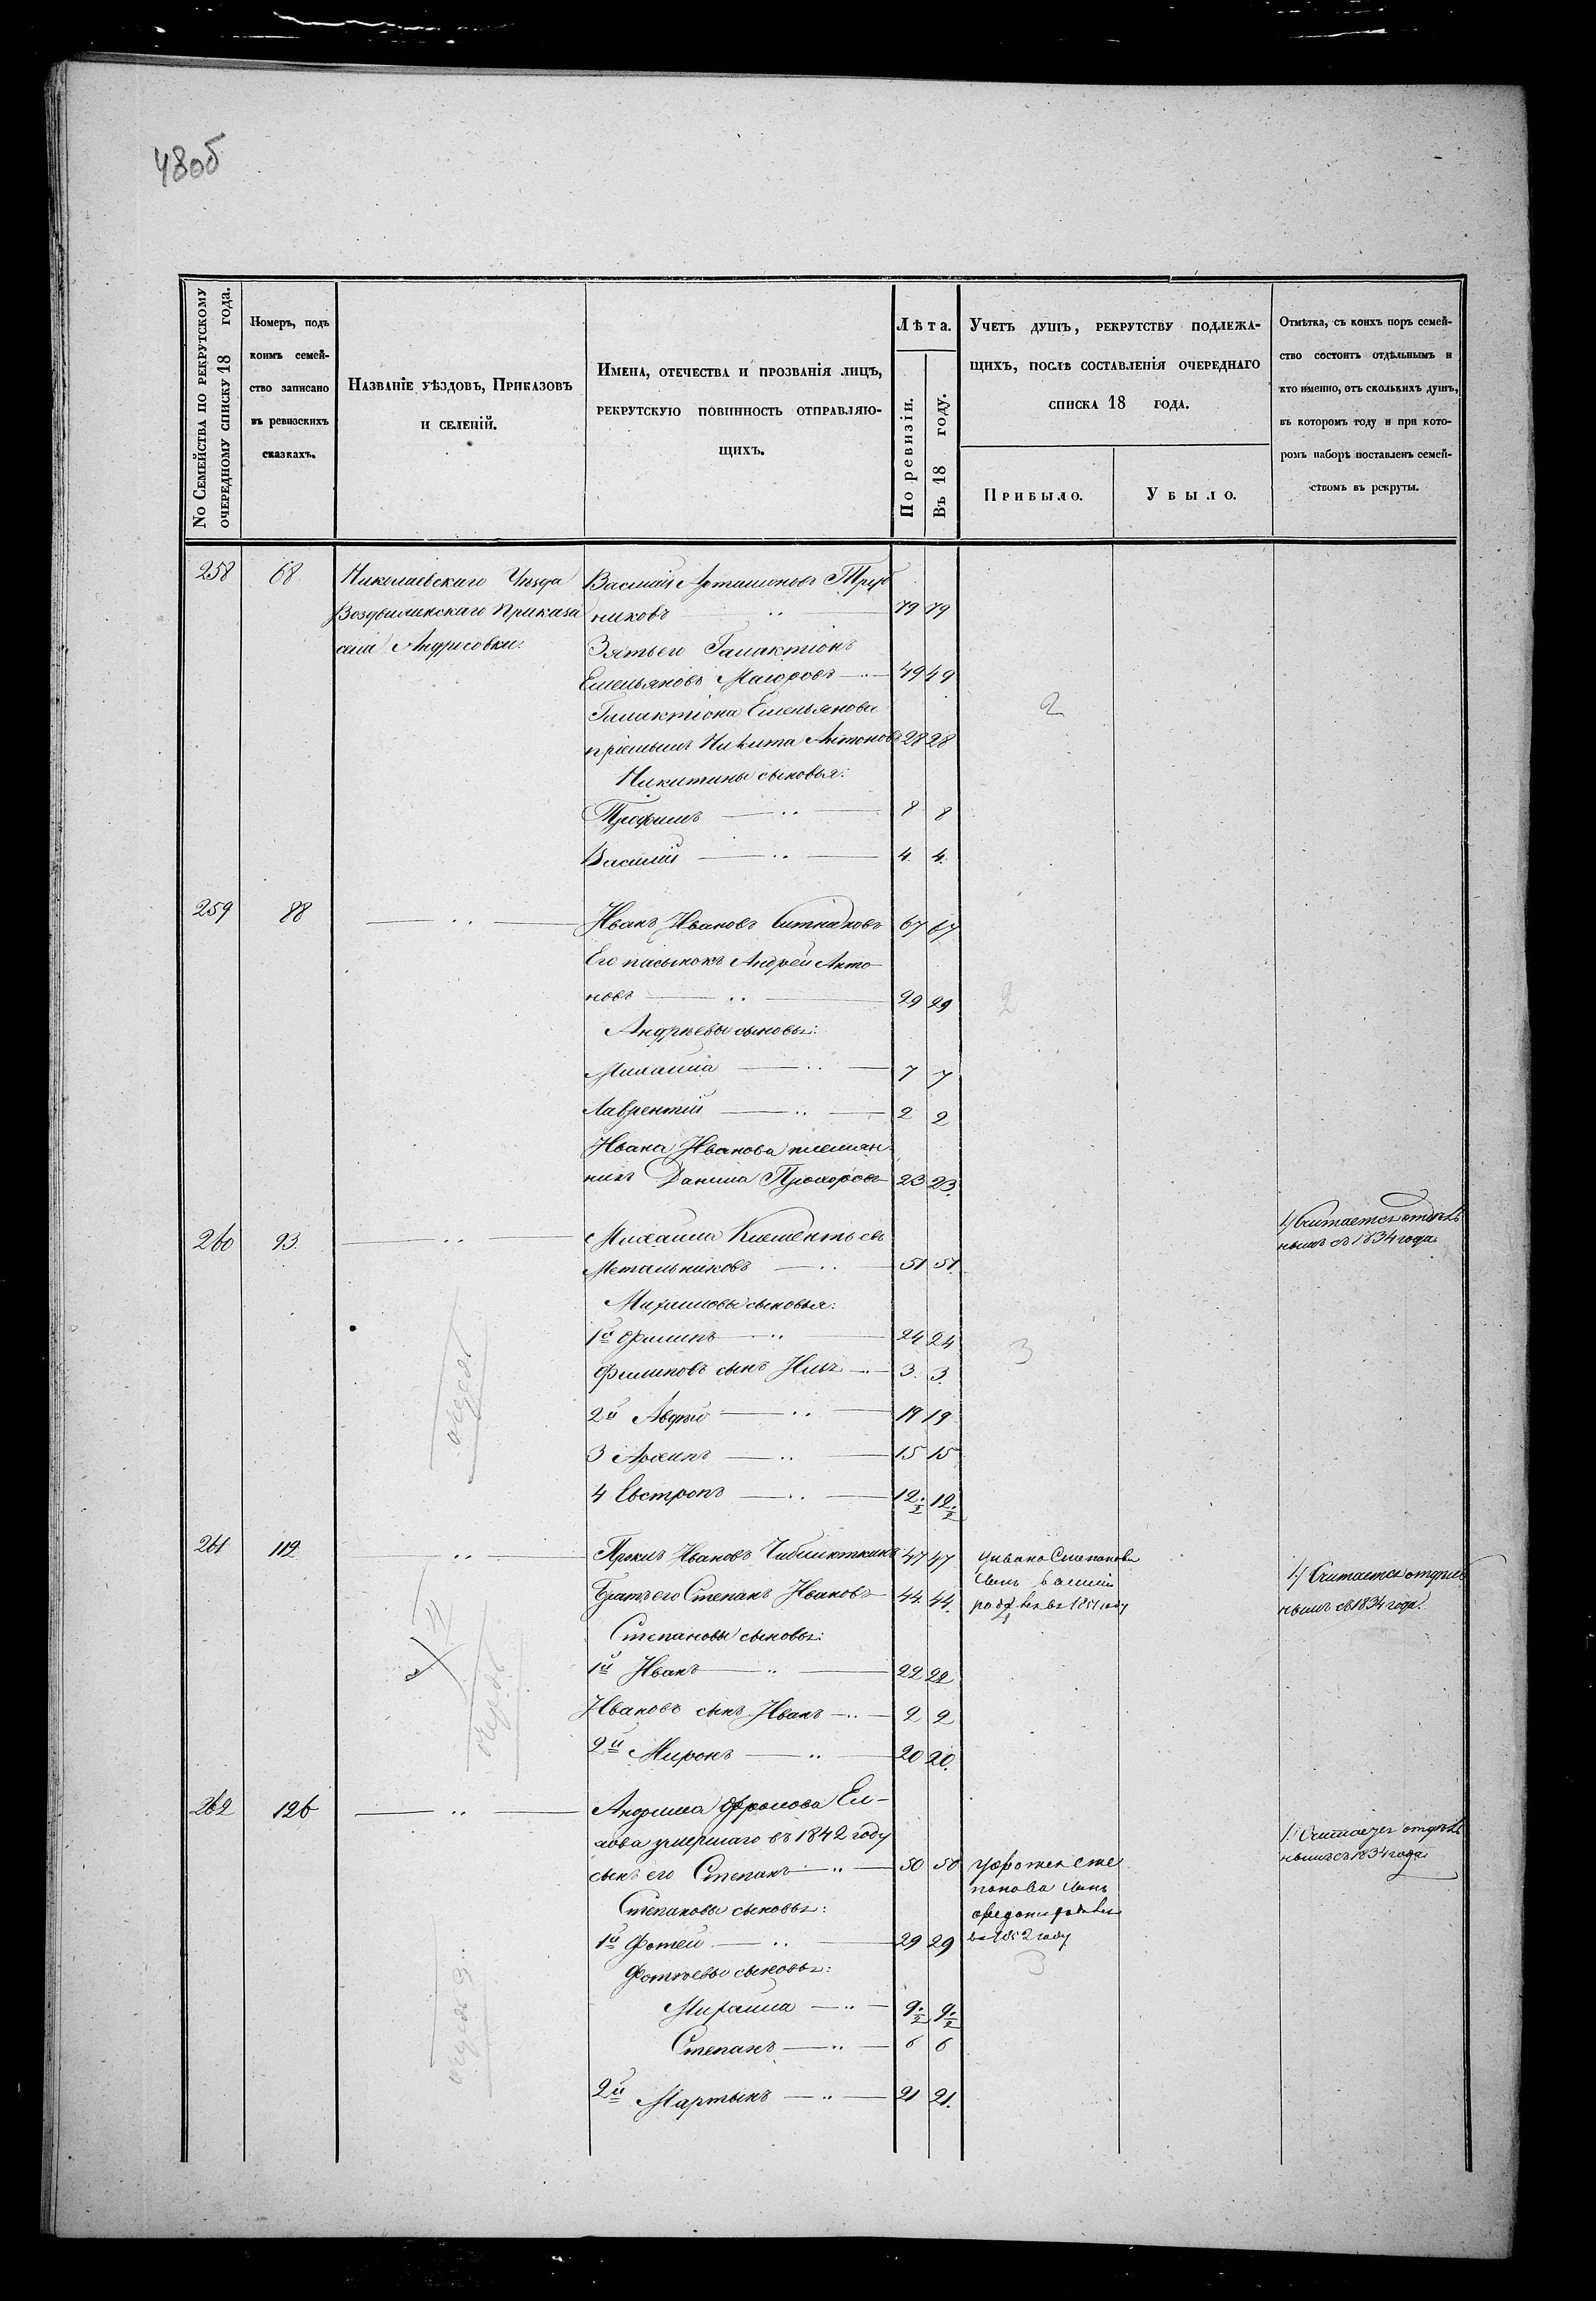 48об
No Семейства по рекрутскому
очередному списку 18 года.
Номеръ, подъ
коимъ семей-
ство записано
въ ревизскихъ
сказкахъ.
Названіе уѣздовъ, Приказовъ
и селеній.
Имена, отечества и прозванія лицъ,
рекрутскую повинность отправляю-
щихъ.
Лѣта.
По ревизіи.
Въ 18 году.
Учетъ душъ, рекрутству подлежа-
щихъ, послѣ составленія очереднаго
списка 18 года.
Прибыло.
Убыло.
Отмѣтка, съ коихъ поръ семей-
ство состоитъ отдѣльнымъ и
кто именно, отъ сколькихъ душъ,
въ которомъ году и при кото-
ромъ наборѣ поставленъ семей-
ствомъ въ рекруты.
258 68 Николаевскаго Уѣзда Василій
Воздвиженскаго Приказа никовъ 79 79
села Андросовки. Зятьего Галактіонъ
Емельяновъ Маіоровъ 49 49
Галактіона Емельянова
пріемышъ Никита Антоновъ 28 28
2
Никитины сыновья:
Трофимъ 8 8
Василій 4. 4.
259 88 Иванъ Ивановъ Ситниковъ 67 67
Его пасынокъ Андрей Анто
новъ 29 29 2
Андрѣевы сыновья:
Михаила 7 7
Лаврентій 2 2
Ивана Иванова племян
никъ Данила Прохоровъ 23 23.
260 93. Михаила Клементьевъ
1) Считается отдѣль
нымъ съ 1834 года.
Метальниковъ 51 51.
Михайловы сыновья:
1й Филипъ 24 24
3
Филиповъ сынъ Илья 3. 3.
2й Авдѣй 19 19
3 Архипъ 15 15
4 Евстропъ 12.½ 12.½
261 112 Ивановъ 47 47 у Ивана Степанова
сынъ Василій
родился въ 1851 году
1) Считается отдѣль
нымъ съ 1834 года.
Братъ его Степанъ Ивановъ 44. 44. 4
Степановы сыновья:
1й Иванъ 22 22
Ивановъ сынъ Иванъ 2 2
2й Миронъ 20 20.
262 126 Фролова Ел-
ховa умершаго въ 1842 году
1. Считается отдѣль
нымъ съ 1834 года.
сынъ его Степанъ 50 50 у Фотея Сте
панова сынъ
въ 1852 году
Степановы сыновья:
1й Фотей 29 29
3
Фотѣевы сыновья:
Михаила 9.½ 9.½
Степанъ 6 6
2й Мартынъ 21 21.